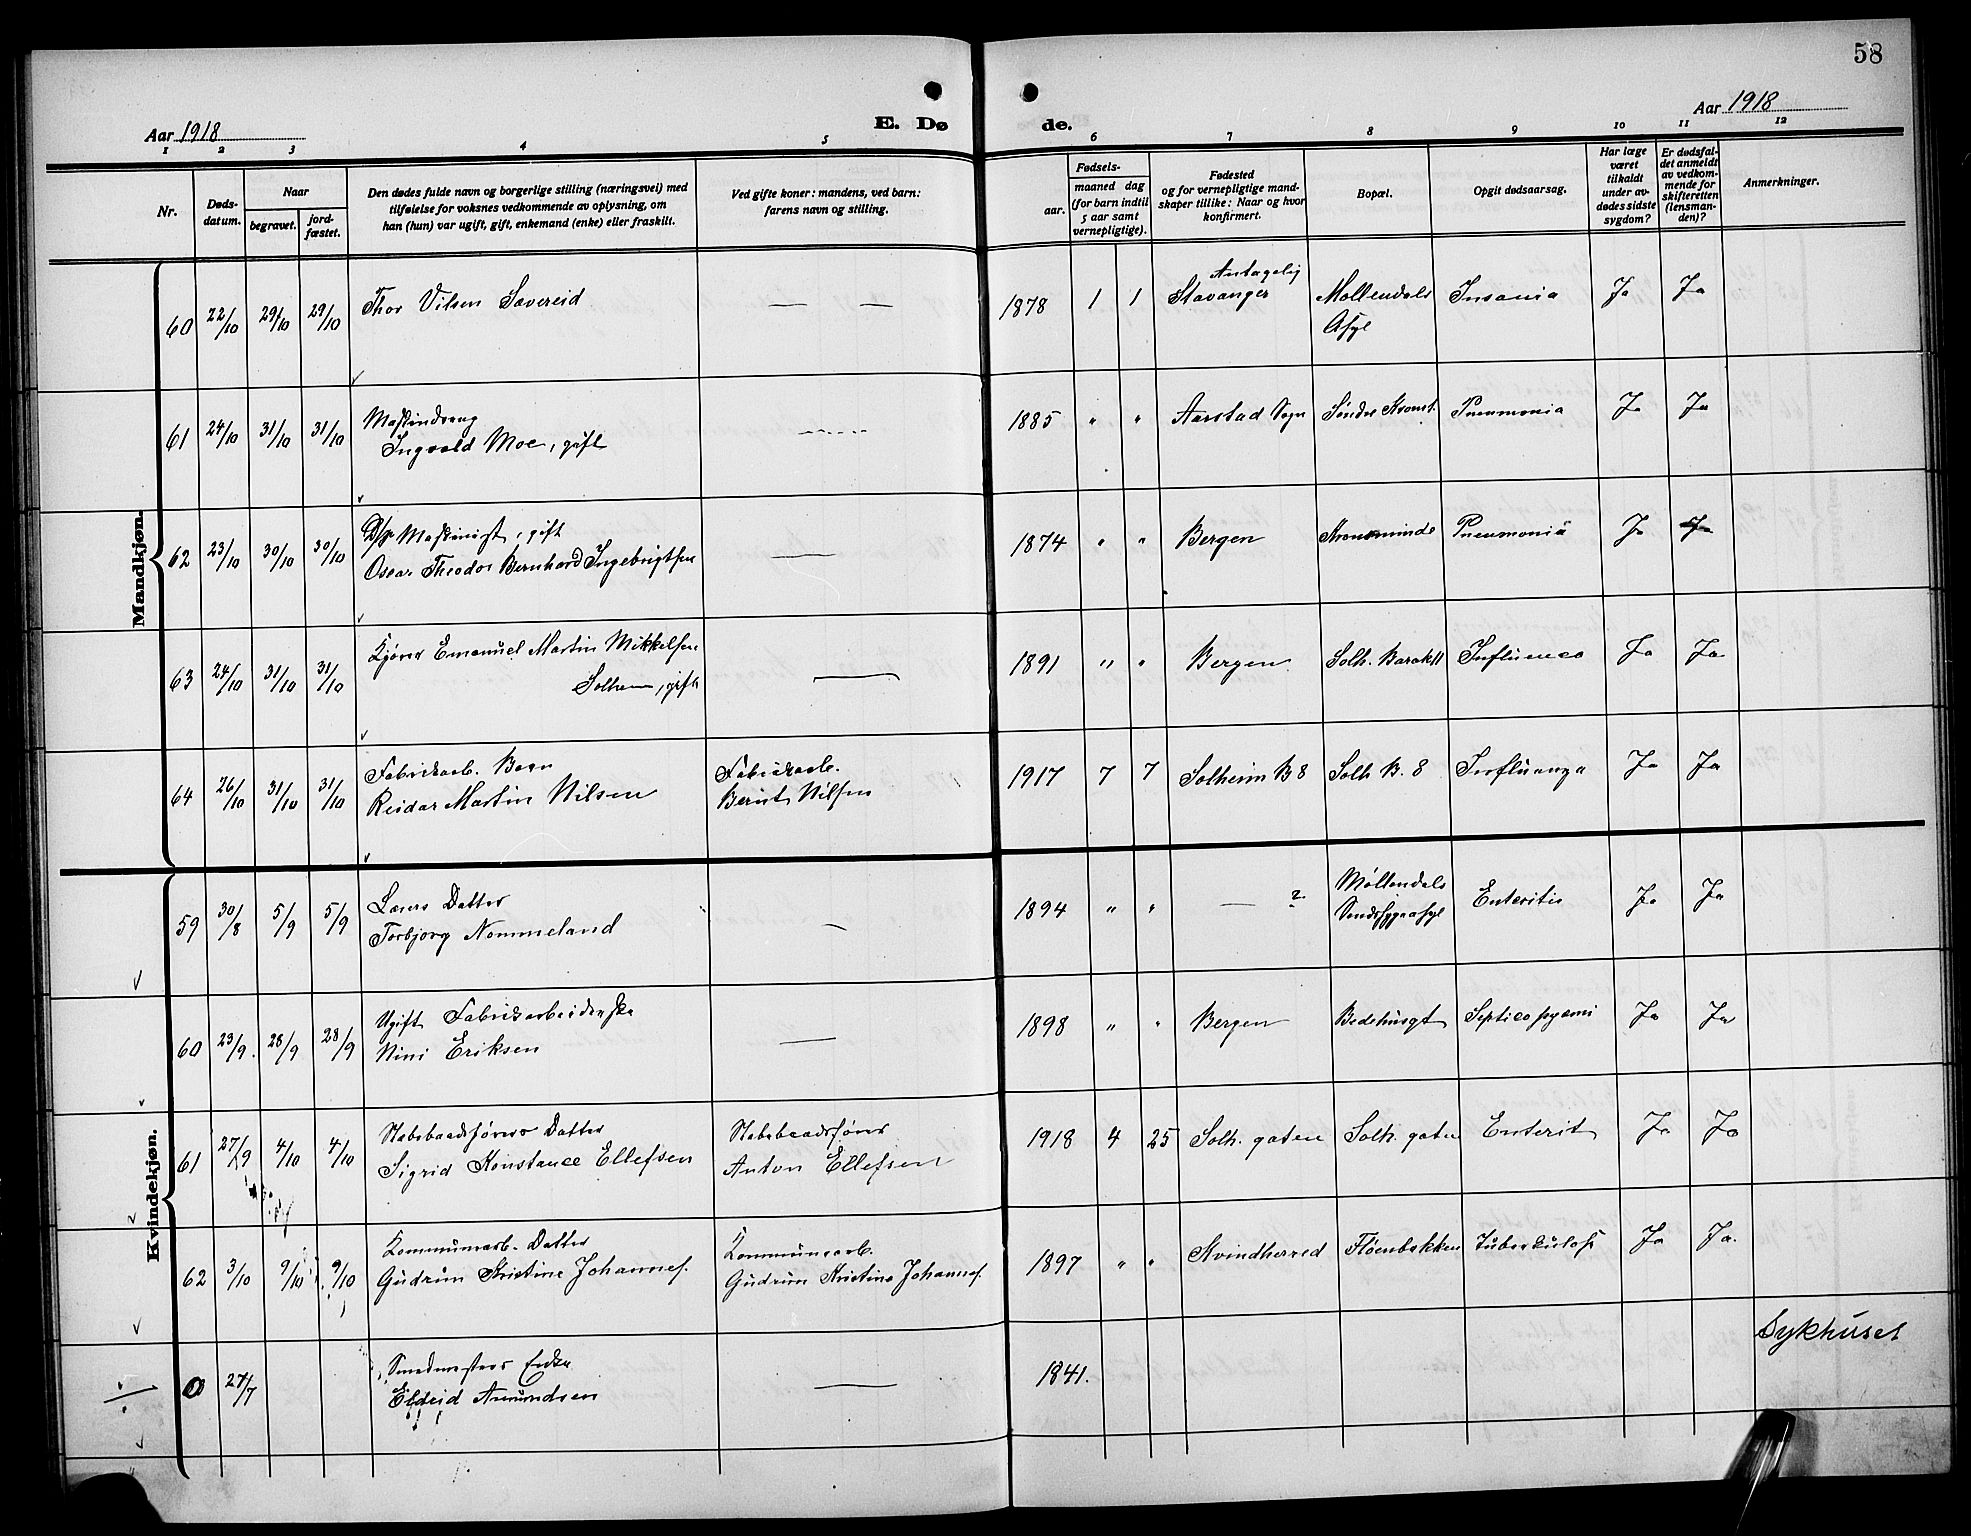 58
Aar 1918
E. Dø
de.
Aar 1918
1 2 3 4 5 6 7 8 9 10 11 12
Nr.
Døds-
datum.
Naar
begravet.
jord-
fæstet.
Den dødes fulde navn og borgerlige stilling (næringsvei) med
tilføielse for voksnes vedkommende av oplysning, om
han (hun) var ugift, gift, enkemand (enke) eller fraskilt.
Ved gifte koner: mandens, ved barn:
farens navn og stilling.
Fødsels-
aar.
maaned dag
(for barn indtil
5 aar samt
vernepligtige).
Fødested
og for vernepligtige mand-
skaper tillike: Naar og hvor
konfirmert.
Bopæl.
Opgit dødsaarsag.
Har læge
været
tilkaldt
under av-
dødes sidste
sygdom?
Er dødsfal-
det anmeldt
av vedkom-
mende for
skifteretten
(lensman-
den)?
Anmerkninger.
Mandkjøn.
Antagelig
60 22/10 29/10 29/10 Thor Vilsen Sævereid — — 1878 1 1 Stavanger Møllendals Insania Ja Ja
Asyl
Maskindreng
61 24/10 31/10 31/10 Ingvald Moe, gift 1885 " " Aarstad Sogn Søndre Kronst. Pneumonia Ja Ja
D/sp Maskinist, gift
62 23/10 30/10 30/10 Oscar Theodor Bernhard Ingebrigtsen — 1874 " " Bergen Kronminde Pneumonia Ja Ja
Emanuel Martin Mikkelsen
63 24/10 31/10 31/10 Solheim, gift — 1891 " " Bergen Solh. Barakk Influenca Ja Ja
Fabrikarb. Barn Fabrikarb.
64 26/10 31/10 31/10 Reidar Martin Nilsen Bernt Nilsen 1917 7 7 Solheim B 8 Solh B. 8 Influenza Ja Ja
Kvindekjøn.
Lærers Datter Møllendals
59 30/8 5/9 5/9 Torbjorg Nommeland — 1894 " " — ? Sindssygeasyl Enteritis Ja Ja
Ugift Fabrikarbeiderske
60 23/9. 28/9 28/9 Nini Eriksen — 1898 " " Bergen Bedehusgt Septicopyæmi Ja Ja
Slæbebaadsførers Datter Slæbebaadsfører
61 27/9 4/10 4/10 Sigrid Konstance Ellefsen Anton Ellefsen 1918 4 25 Solh. gaten Solh. gaten Enterit Ja Ja
Kommunearb. Datter Kommunearb.
62 3/10 9/10 9/10 Gudrun Kristine Johannes. Gudrun Kristine Johannes. 1897 " " Kvindherred Fløenbakken Tuberkulose Ja Ja.
Sykhuset
Smedmesters Enke
0 27/7 Eldrid Amundsen — 1841.